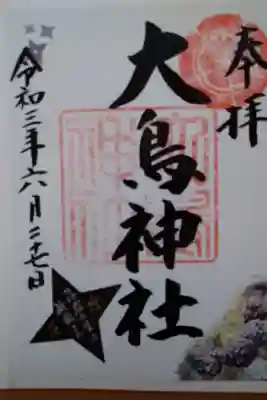 奉拝
大鳥神社
令和三年六月二十七日